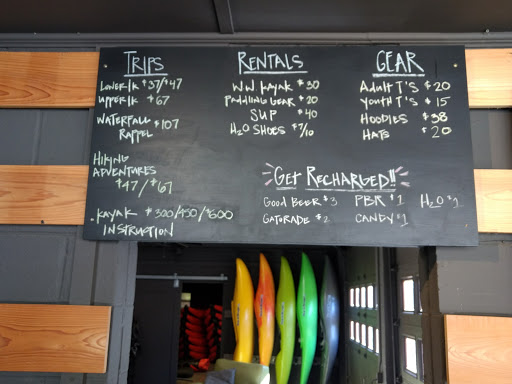 TRIPS
LOWER 1K $37/$47
UPPER 1K $67
WATERFALL $107
RAPPEL
HIKING
ADVENTURES
$47/$67
. KAYAK $300/450/$600
INSTRUCTION
RENTALS
WW KAYAK $30
PADDLING GEAR $20
SUP $40
H2O SHOES $7/10
GEAR
ADULT T'S $20
YOUTH T'S $15
HOODIES $38
HATS $20
GET RECHARGED!!
GOOD BEER $3 PBR $1 H2O $1
GATORADE $2 CANDY $1